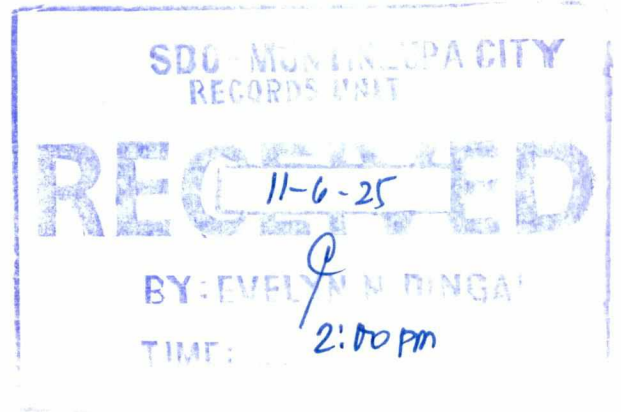 SDO - MUNTINLUPA CITY
RECORDS UNIT
RECEIVED
11-6-25
BY: EVELYN N.
TIME: 2:00 pm